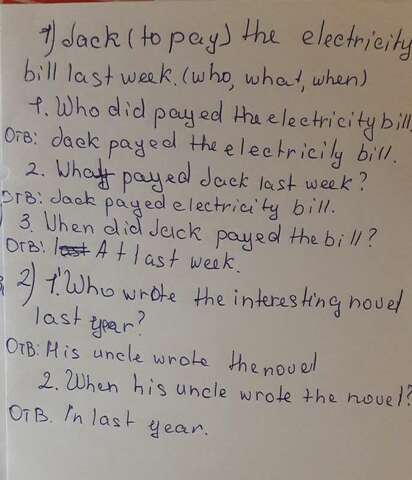 1) Jack (to pay) the electricity
bill last week. (who, what, when)
1. Who did payed the electricity bill
Отв: Jack payed the electricily bill.
2. What payed Jack last week?
Отв: Jack payed electricity bill.
3. When did Jack payed the bill?
Отв: last At last week.
2) 1. Who wrote the interesting novel
last year?
Отв: His uncle wrote the novel
2. When his uncle wrote the novel?
Отв. In last year.